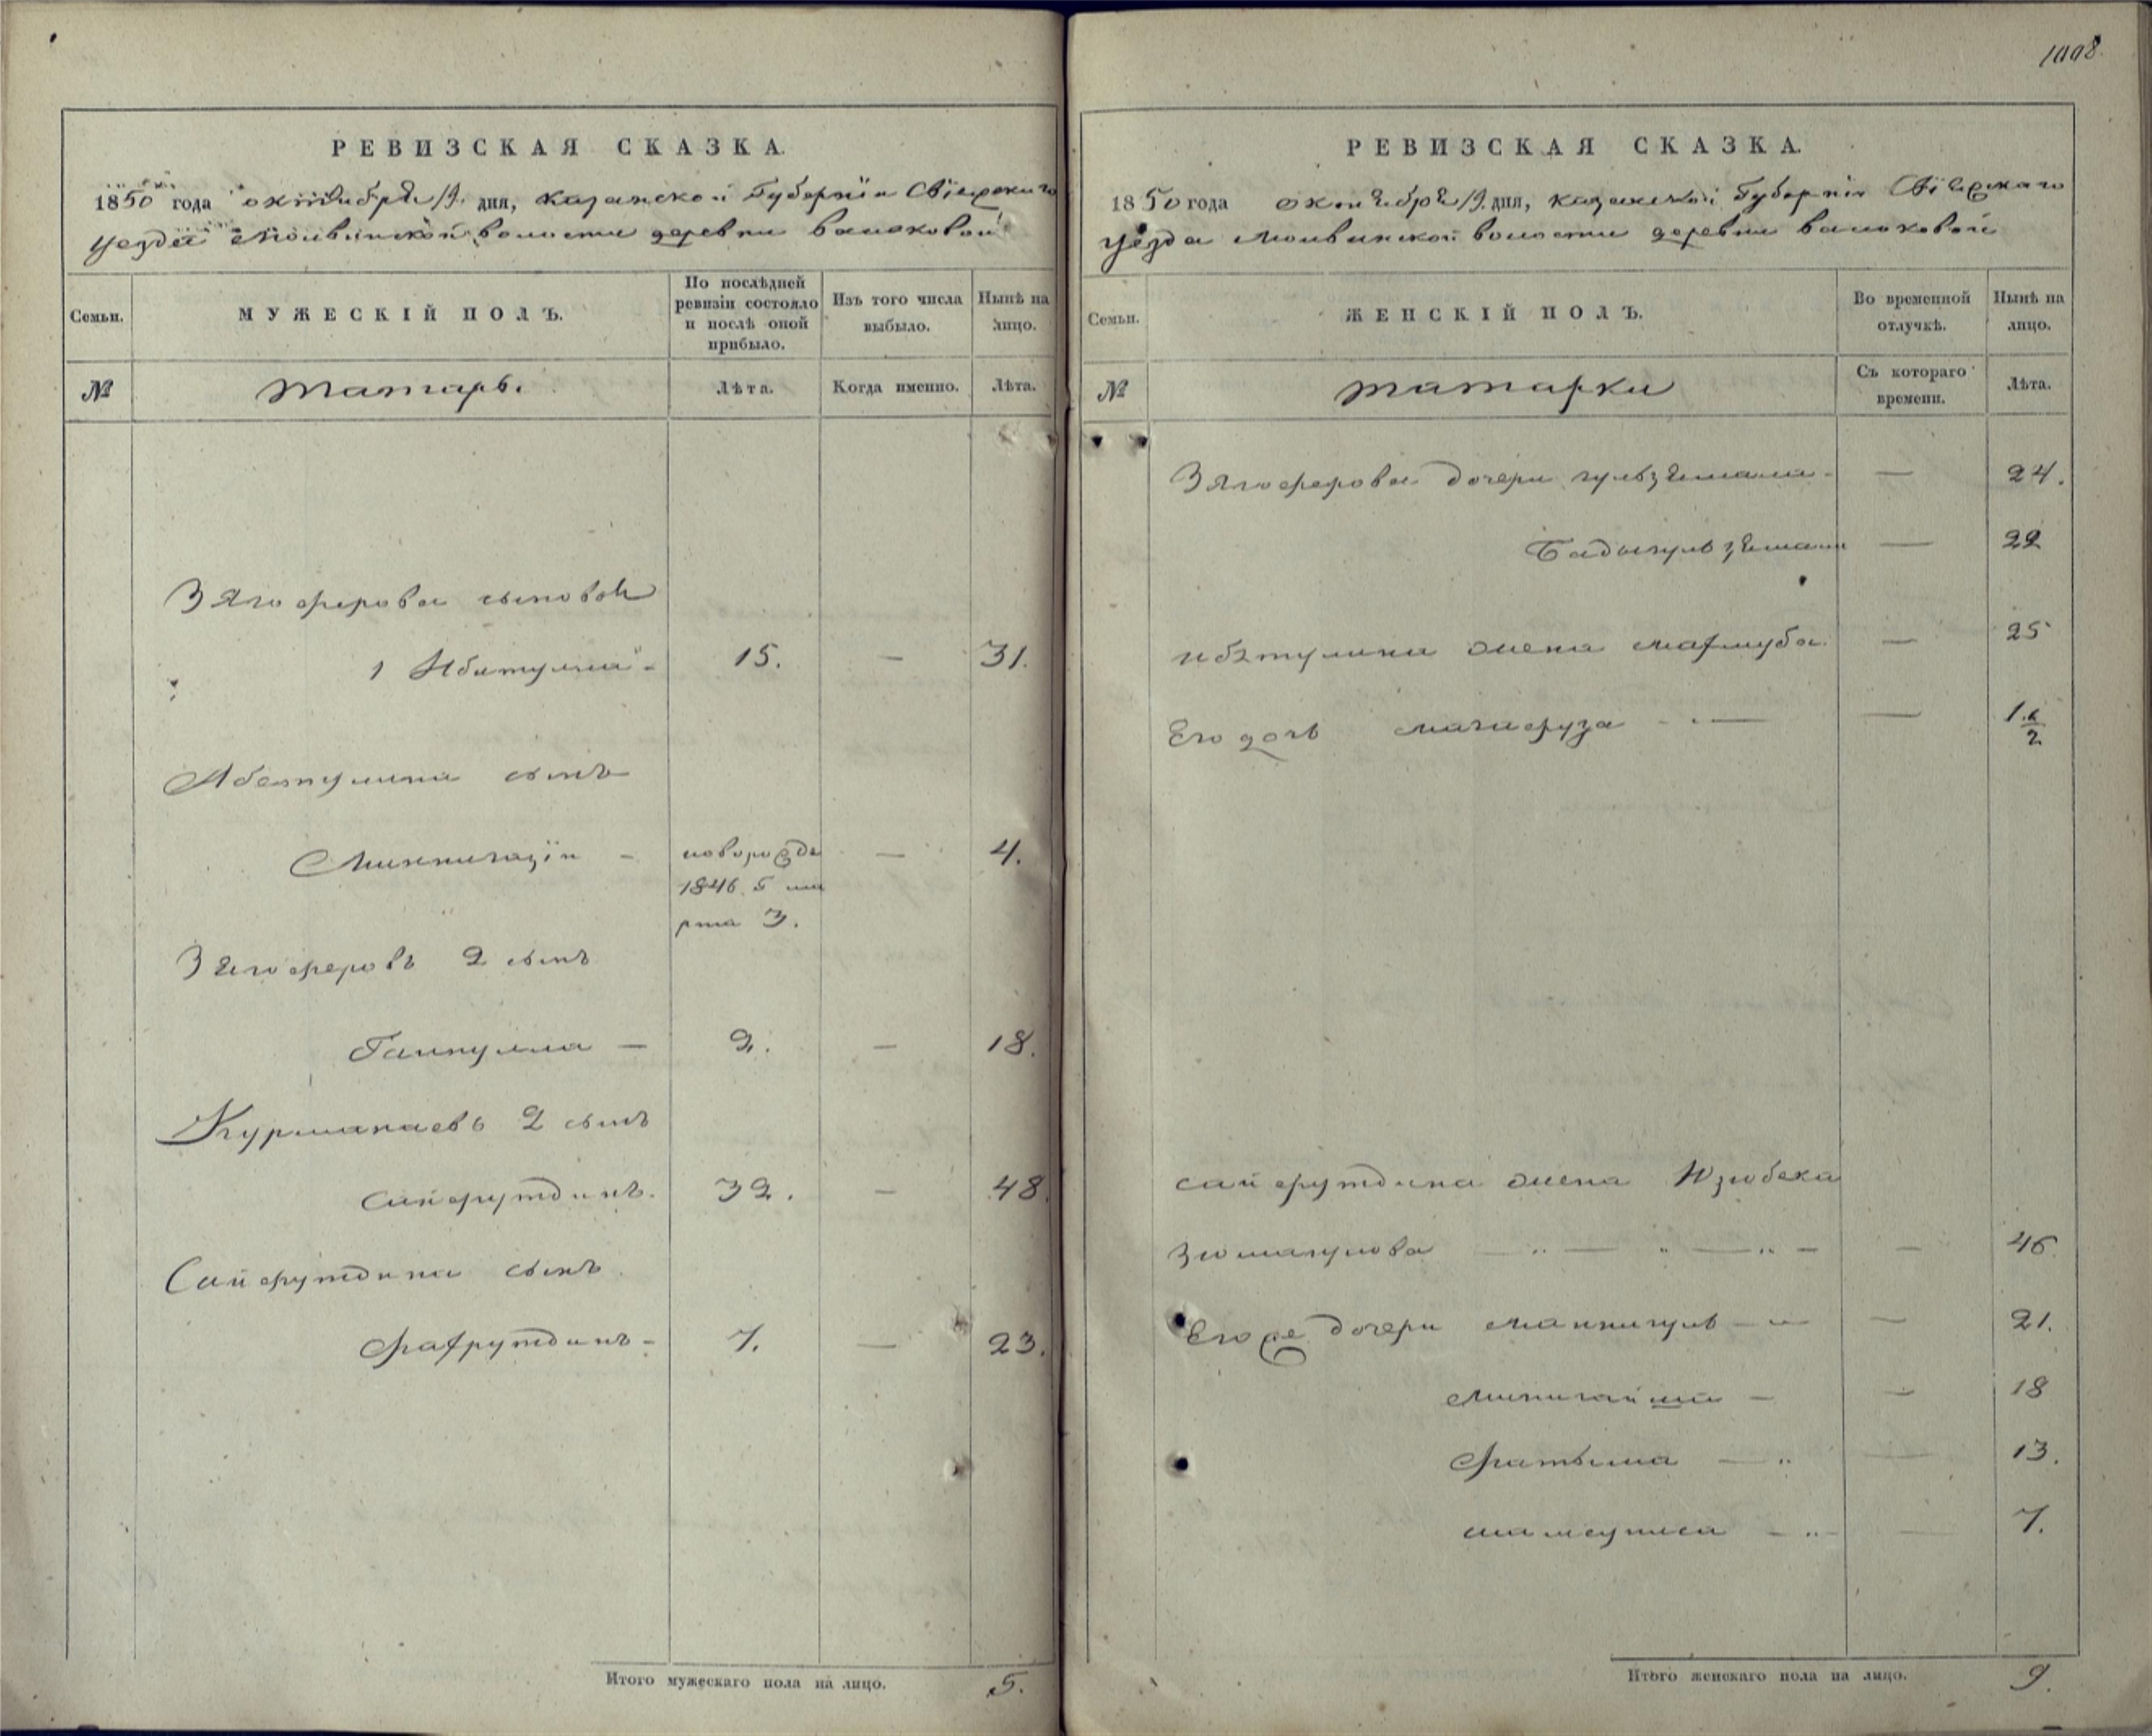 РЕВИЗСКАЯ СКАЗКА.
1850 года октября 19 дня, Казанской Губернïи Свïяжскаго
уезда Молвинской волости деревни
Семьи.
МУЖЕСКІЙ ПОЛЪ.
По послѣдней
ревизіи состояло
и послѣ оной
прибыло.
Изъ того числа
выбыло.
Нынѣ на
лицо.
№
татаръ.
Лѣта.
Когда именно.
Лѣта.
Зягоферова сыновья
1 Ибятулла
15.
—
31.
Абетулина сынъ
Миннигазïи –
новорожде
1846. г ма
рта 3.
—
4.
Зягоферовъ 2 сынъ
Гайнулла —
2.
—
18.
Курманаевъ 2 сынъ
Сайфутдинъ.
32.
—
48.
Сайфутдина сынъ
Фахрутдинъ –
7.
—
23.
Итого мужескаго пола на лицо.
5.
РЕВИЗСКАЯ СКАЗКА.
1850 года октября 19 дня, Казанской Губернïи Свïяжскаго
уезда Молвинской волости деревни
Семьи.
ЖЕНСКІЙ ПОЛЪ.
Во временной
отлучкѣ.
Нынѣ на
лицо.
№
татарки
Съ котораго
времени.
Лѣта.
Зягоферова дочери гульзямали
—
24.
Бадыгульзямал
—
22
ибятулина жена махшуба
—
25
Его дочь
—
1 1/2
сайфутдина жена Юзюбека
—
46.
Егоже дочери маннигуль
—
21.
—
18
Фатыма
—
13.
—
7.
Итого женскаго пола на лицо.
9.